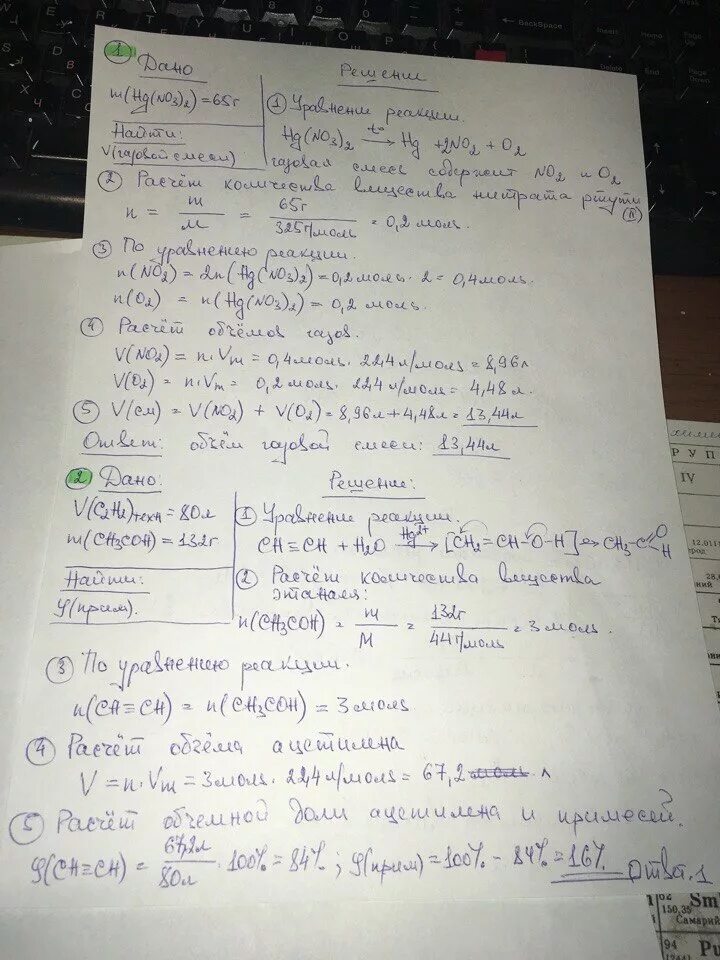 1 Дано
Решение
m(Hg(NO3)2) = 65г
Найти:
V(газовой смеси)
① Уравнение реакции.
Hg(NO3)2 t°→ Hg + 2NO2 + O2
газовая смесь содержит NO2 и O2
② Расчёт количества вещества нитрата ртути (II)
n = m/M = 65г/325г/моль = 0,2 моль.
③ По уравнению реакции.
n(NO2) = 2n(Hg(NO3)2) = 0,2 моль · 2 = 0,4 моль.
n(O2) = n(Hg(NO3)2) = 0,2 моль.
④ Расчёт объёмов газов.
V(NO2) = n·Vm = 0,4 моль · 22,4 л/моль = 8,96л
V(O2) = n·Vm = 0,2 моль · 22,4 л/моль = 4,48 л.
⑤ V(см) = V(NO2) + V(O2) = 8,96л + 4,48л = 13,44л
Ответ: объём газовой смеси: 13,44л
2 Дано:
Решение:
V(C2H2)техн = 80л
m(CH3COH) = 132г
Найти:
φ(прим).
① Уравнение реакции.
CH≡CH + H2O Hg2+→ [CH2=CH-O-H] → CH3-C=O H
② Расчёт количества вещества
этаналя:
n(CH3COH) = m/M = 132г/44г/моль = 3 моль.
③ По уравнению реакции.
n(CH≡CH) = n(CH3COH) = 3 моль
④ Расчёт объёма ацетилена
V = n·Vm = 3 моль · 22,4 л/моль = 67,2 л
⑤ Расчёт объемной доли ацетилена и примесей.
φ(CH≡CH) = 67,2л/80л · 100% = 84% ; φ(прим) = 100% - 84% = 16% Ответ. 1
BackSpace
Insert
Home
Delete
End
Page Down
Р У П
IV
12,011
28,
62 Sm
150,35
Самарий
94 Pu